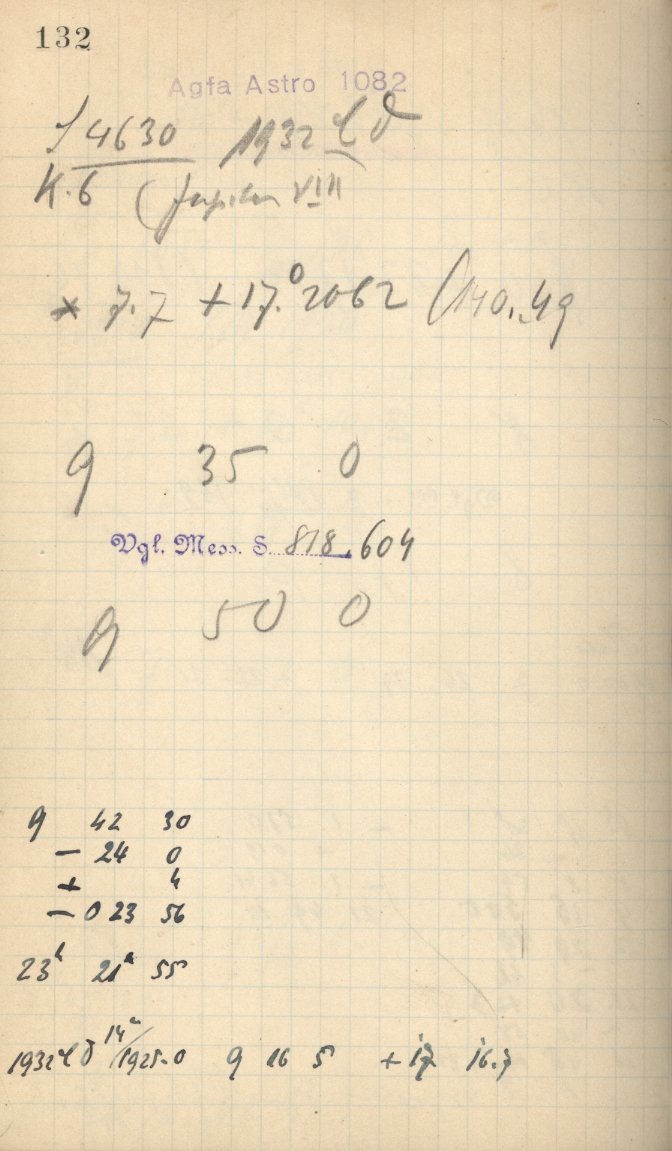 132
Agfa Astro 1082
4630 1932
K. 6 (Jupiter VIII)
* 7.7 +17.°2062 (140.49
9 35 0
Vgl. Mess. S. 818, 604
9 50 0
9 42 30
- 24 0
+ 4
- 0 23 56
23h 21m 55
1932 14m / 1925.0 9 16 5 +17 16.7